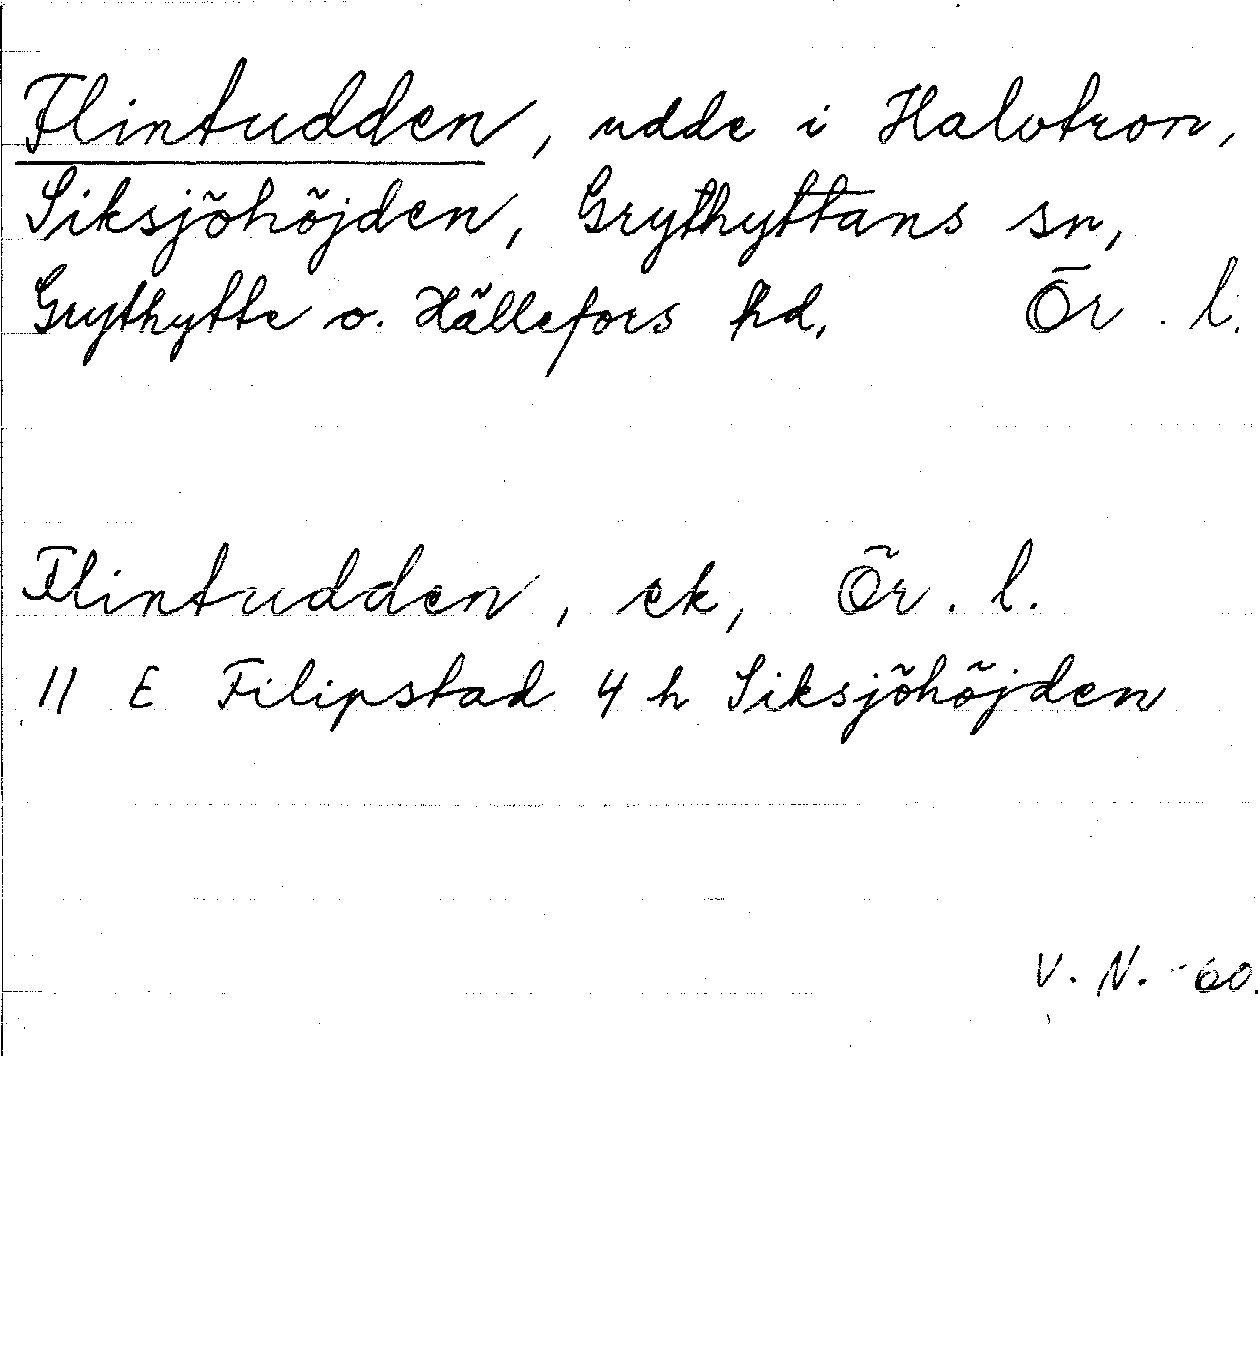 Flintudden, udde i Halvtron,
Siksjöhöjden, Grythyttans sn,
Grythytte o. Hällefors hd, Ör. l.
Flintudden, ek, Ör. l.
11 E Filipstad 4 h Siksjöhöjden
V. N. -60.